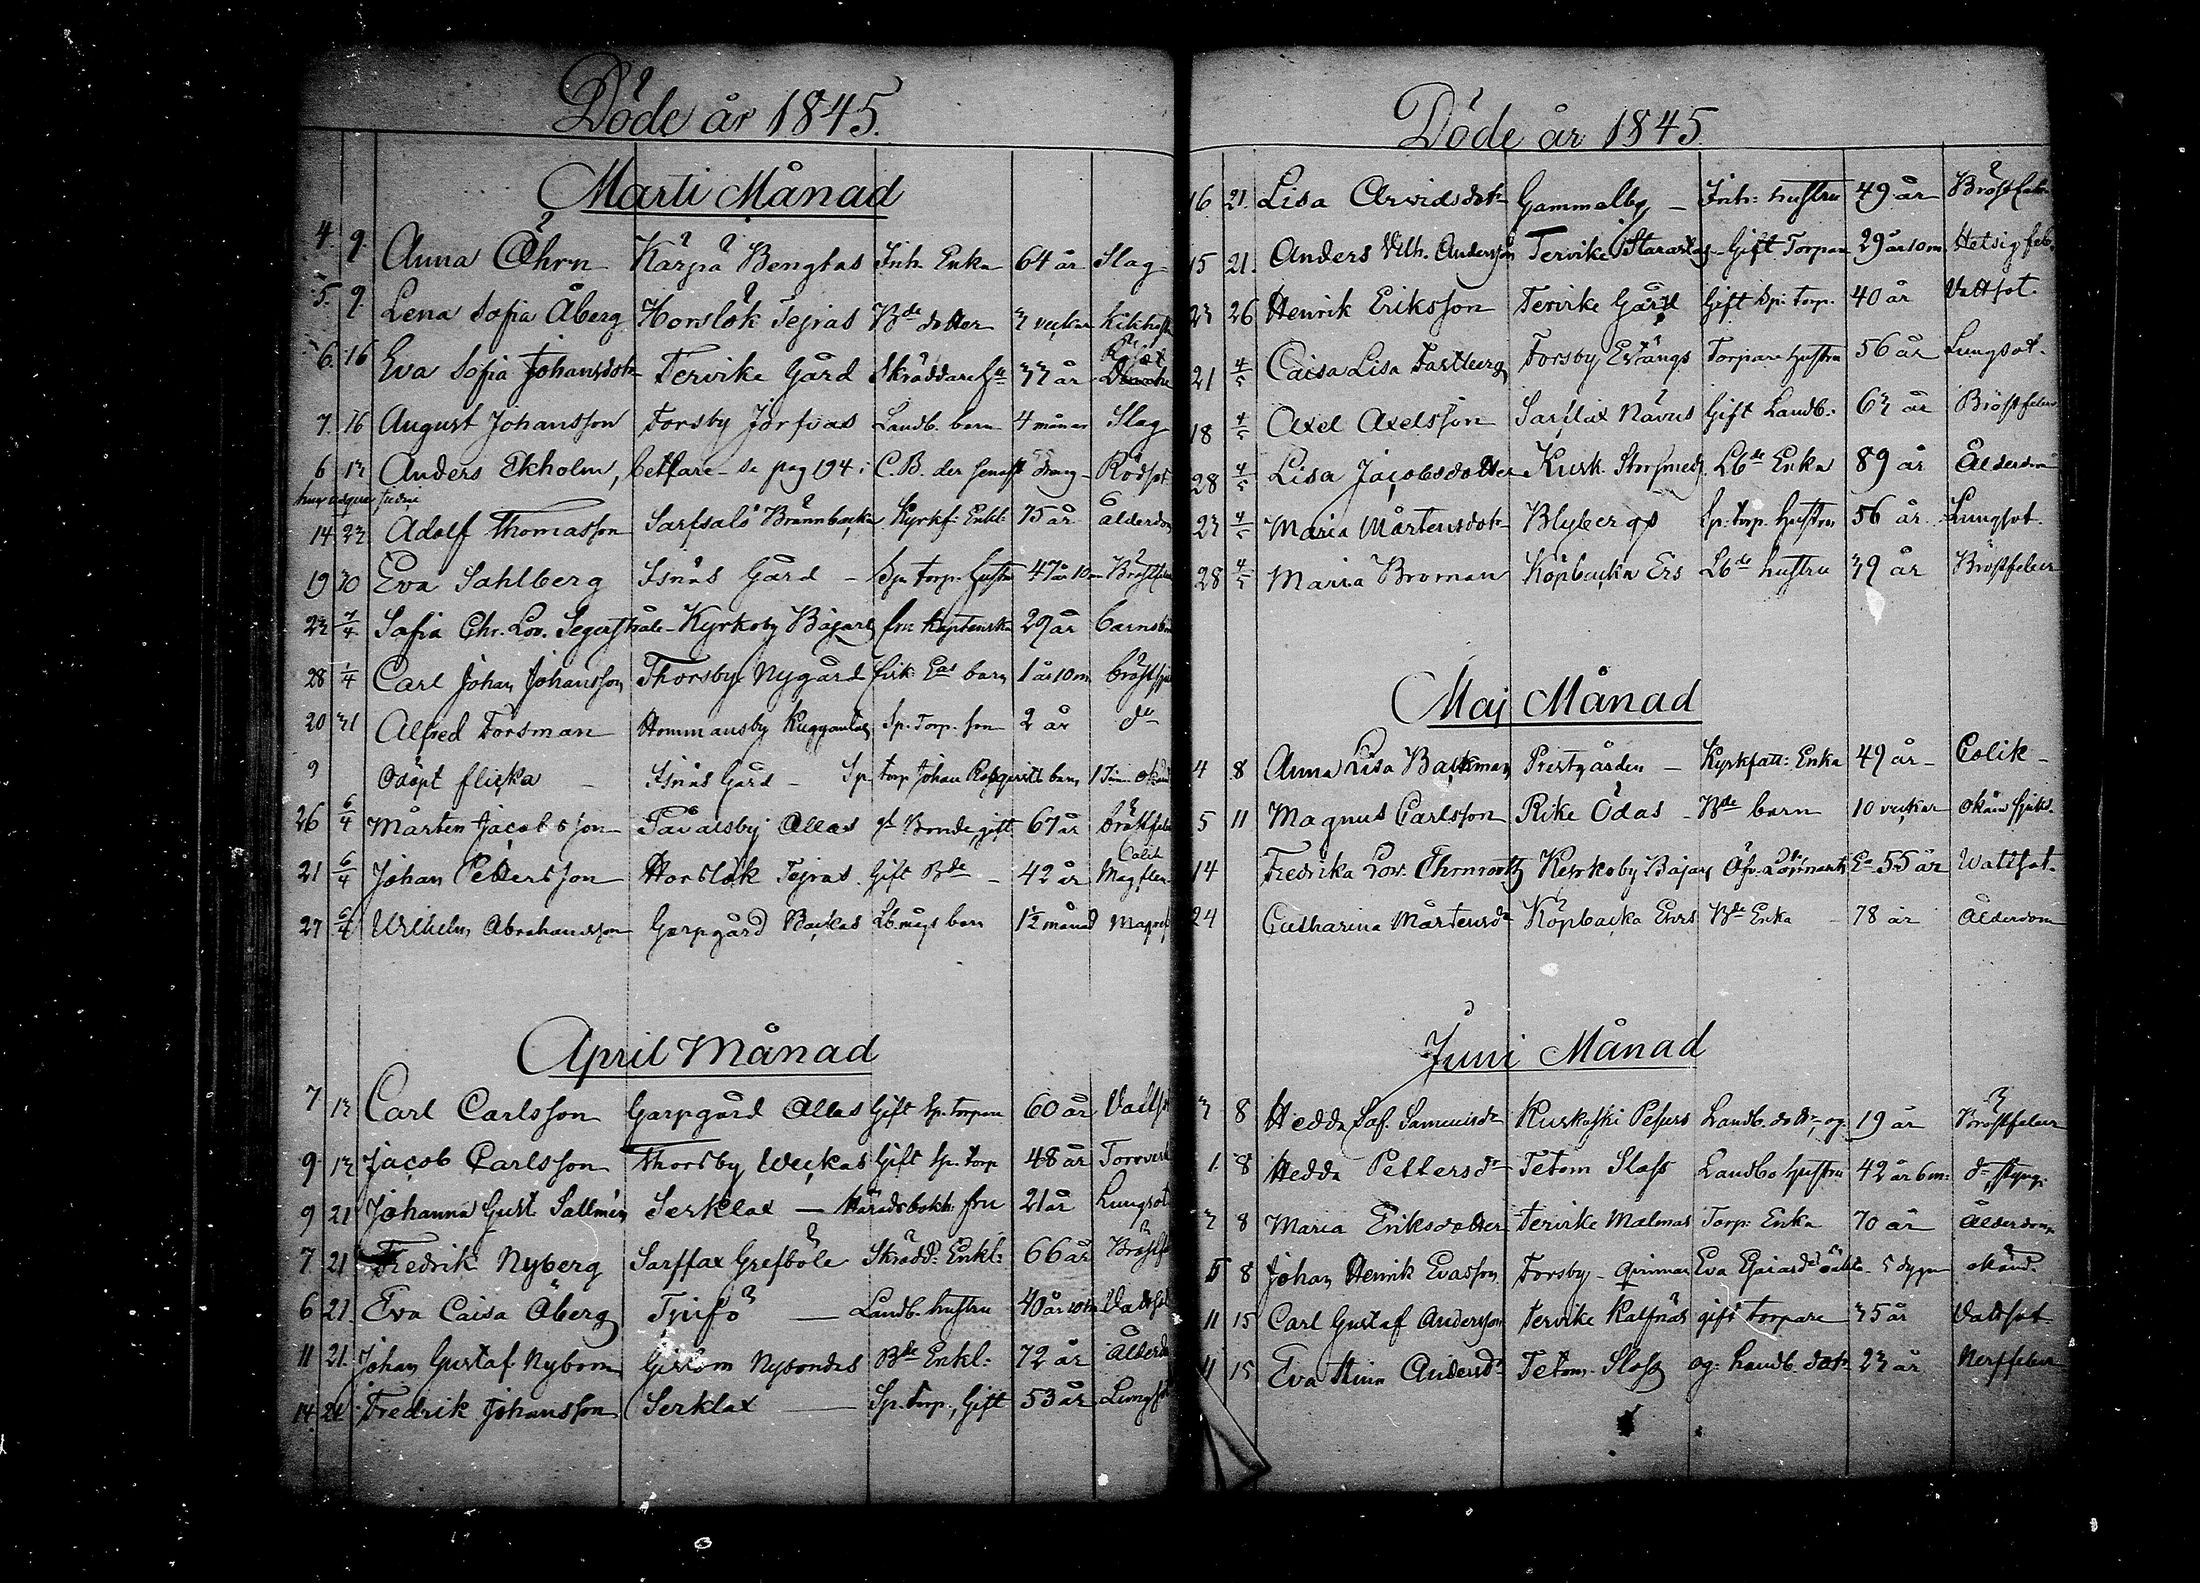 Döde år 1845.
Marti Månad
4. 9. Anna Öhrn Kärpä Bengtas Inh. Enka 64 år Slag
5. 9. Lena Sofia Åberg Horslök Tejras Bde dotter 3 veckor Kikhost
6. 16 Eva Sofia Johansdotr Tervike Gård Skräddare 33 år
7. 16 August Johansson Forsby Jorfvas Landb. barn 4 månar Slag
6 13 Anders Ekholm, betlare se pag 194 i C.B. der Rödsot
14 23 Adolf Thomasson Sarfsalö Brännbacka Kyrkf. Enkl: 75 år ålderdom
19 30 Eva Sahlberg Isnäs Gård - Spn Torp. Hustru 47 år 10 m Bröstfeber
23 7/4 Sofia Chr. Lov. Segerstråle - Kyrkoby Bajars fru Kaptenska 29 år barnsbörd
28 1/4 Carl Johan Johansson Thorsby Nygård Eas barn 1 år 10 m bröstsju
20 31 Alfred Forsman Hommansby Kuggomtog Sp. Torp. son 2 år do
9 Odöpt flicka - Isnäs Gård - Sp. torp Johan Rosqvists barn 1 Tim. okänd
26 6/4 Mårten Jacobsson Tavalsby Allas gl. Bonde, gift 67 år bröstfeber
21 6/4 Johan Pettersson Horslök Tejras. Gift Bde - 42 år Colik Magfeber
27 6/4 Wilhelm Abrahamsson Garpgård Backas Lb. mågs barn 1½ månad Magref
April Månad
7 13 Carl Carlsson Garpgård Allas Gift Sp. torpare 60 år Vattsot
9 13 Jacob Carlsson Thorsby Weckas Gift Sp. torp 48 år Torrverk
9 21 Johanna Gust. Sallmén Serklax - Häradsbokh. fru 21 år Lungsot
7 21 Fredrik Nyberg Sarflax Grefböle Skrädd: Enkl: 66 år Bröstfe
6 21. Eva Caisa Åberg Tjusö - Landb. hustru 40 år 10 m Vattsot
11 21. Johan Gustaf Nybom Gislom Nybondas Bde Enkl: 72 år Ålderdom
14. 21. Fredrik Johansson Serklax - Sp. Torp., Gift 53 år Lungsot
Döde år 1845.
16. 21. Lisa Arvidsdotr Gammelby - Inh: hustru 49 år Bröstfeber
15 21. Anders Vilh. Andersson Tervike Starastas - Gift Torpare 29 år 10 m Hetsig feb.
23 26 Henrik Eriksson Tervike Gård Gift Sp: torp. 40 år Vattsot.
21 4/5 Caisa Lisa Fastberg Forsby Ersängs Torpare hustru 56 år Lungsot.
18 4/5 Axel Axelsson Sarflax Nävus Gift Landb: 63 år Bröstfeber
28 4/5 Lisa Jacobsdotter Kursk. Storsmeds Lbde Enka 89 år Ålderdom
23 4/5 Maria Mårtensdotr Blybergs Sp. torp. hustru 56 år Lungsot.
28 4/5 Maria Broman Köpbacka Ers Lbde hustru 39 år Bröstfeber
Maj Månad
4 8 Anna Lisa Backman Prestgården - Kyrkfatt: Enka 49 år - Colik -
5 11 Magnus Carlsson Rike Ödas - Bde barn 10 veckor okänd sjukd.
14 Fredrika Lov. Thornroth Kyrkoby Bajars Öfv. Löjtnants Ea 55 år Wattsot.
24 Catharina Mårtensdr Köpbacka Ehrs Bde Enka - 78 år Ålderdom
Juni Månad
3 8 Hedda Sof. Samuelsdr Kuskoski Pesurs Landb. dotr. og. 19 år Bröstfeber
1. 8 Hedda Pettersdr Tetom Slass Landbo hustru 42 år 6 m: do styng.
3 8 Maria Eriksdotter Tervike Malmas Torp: Enka 70 år Ålderdom
5 8 Johan Henrik Evasson Forsby - qvinnan Eva oäkta 5 dygn okänd.
11 15 Carl Gustaf Andersson Tervike Kalfnäs gift torpare 35 år Vattsot
11 15 Eva Stina Andersdr Tetom Slass og: Landb. dotr 23 år Nerffeber